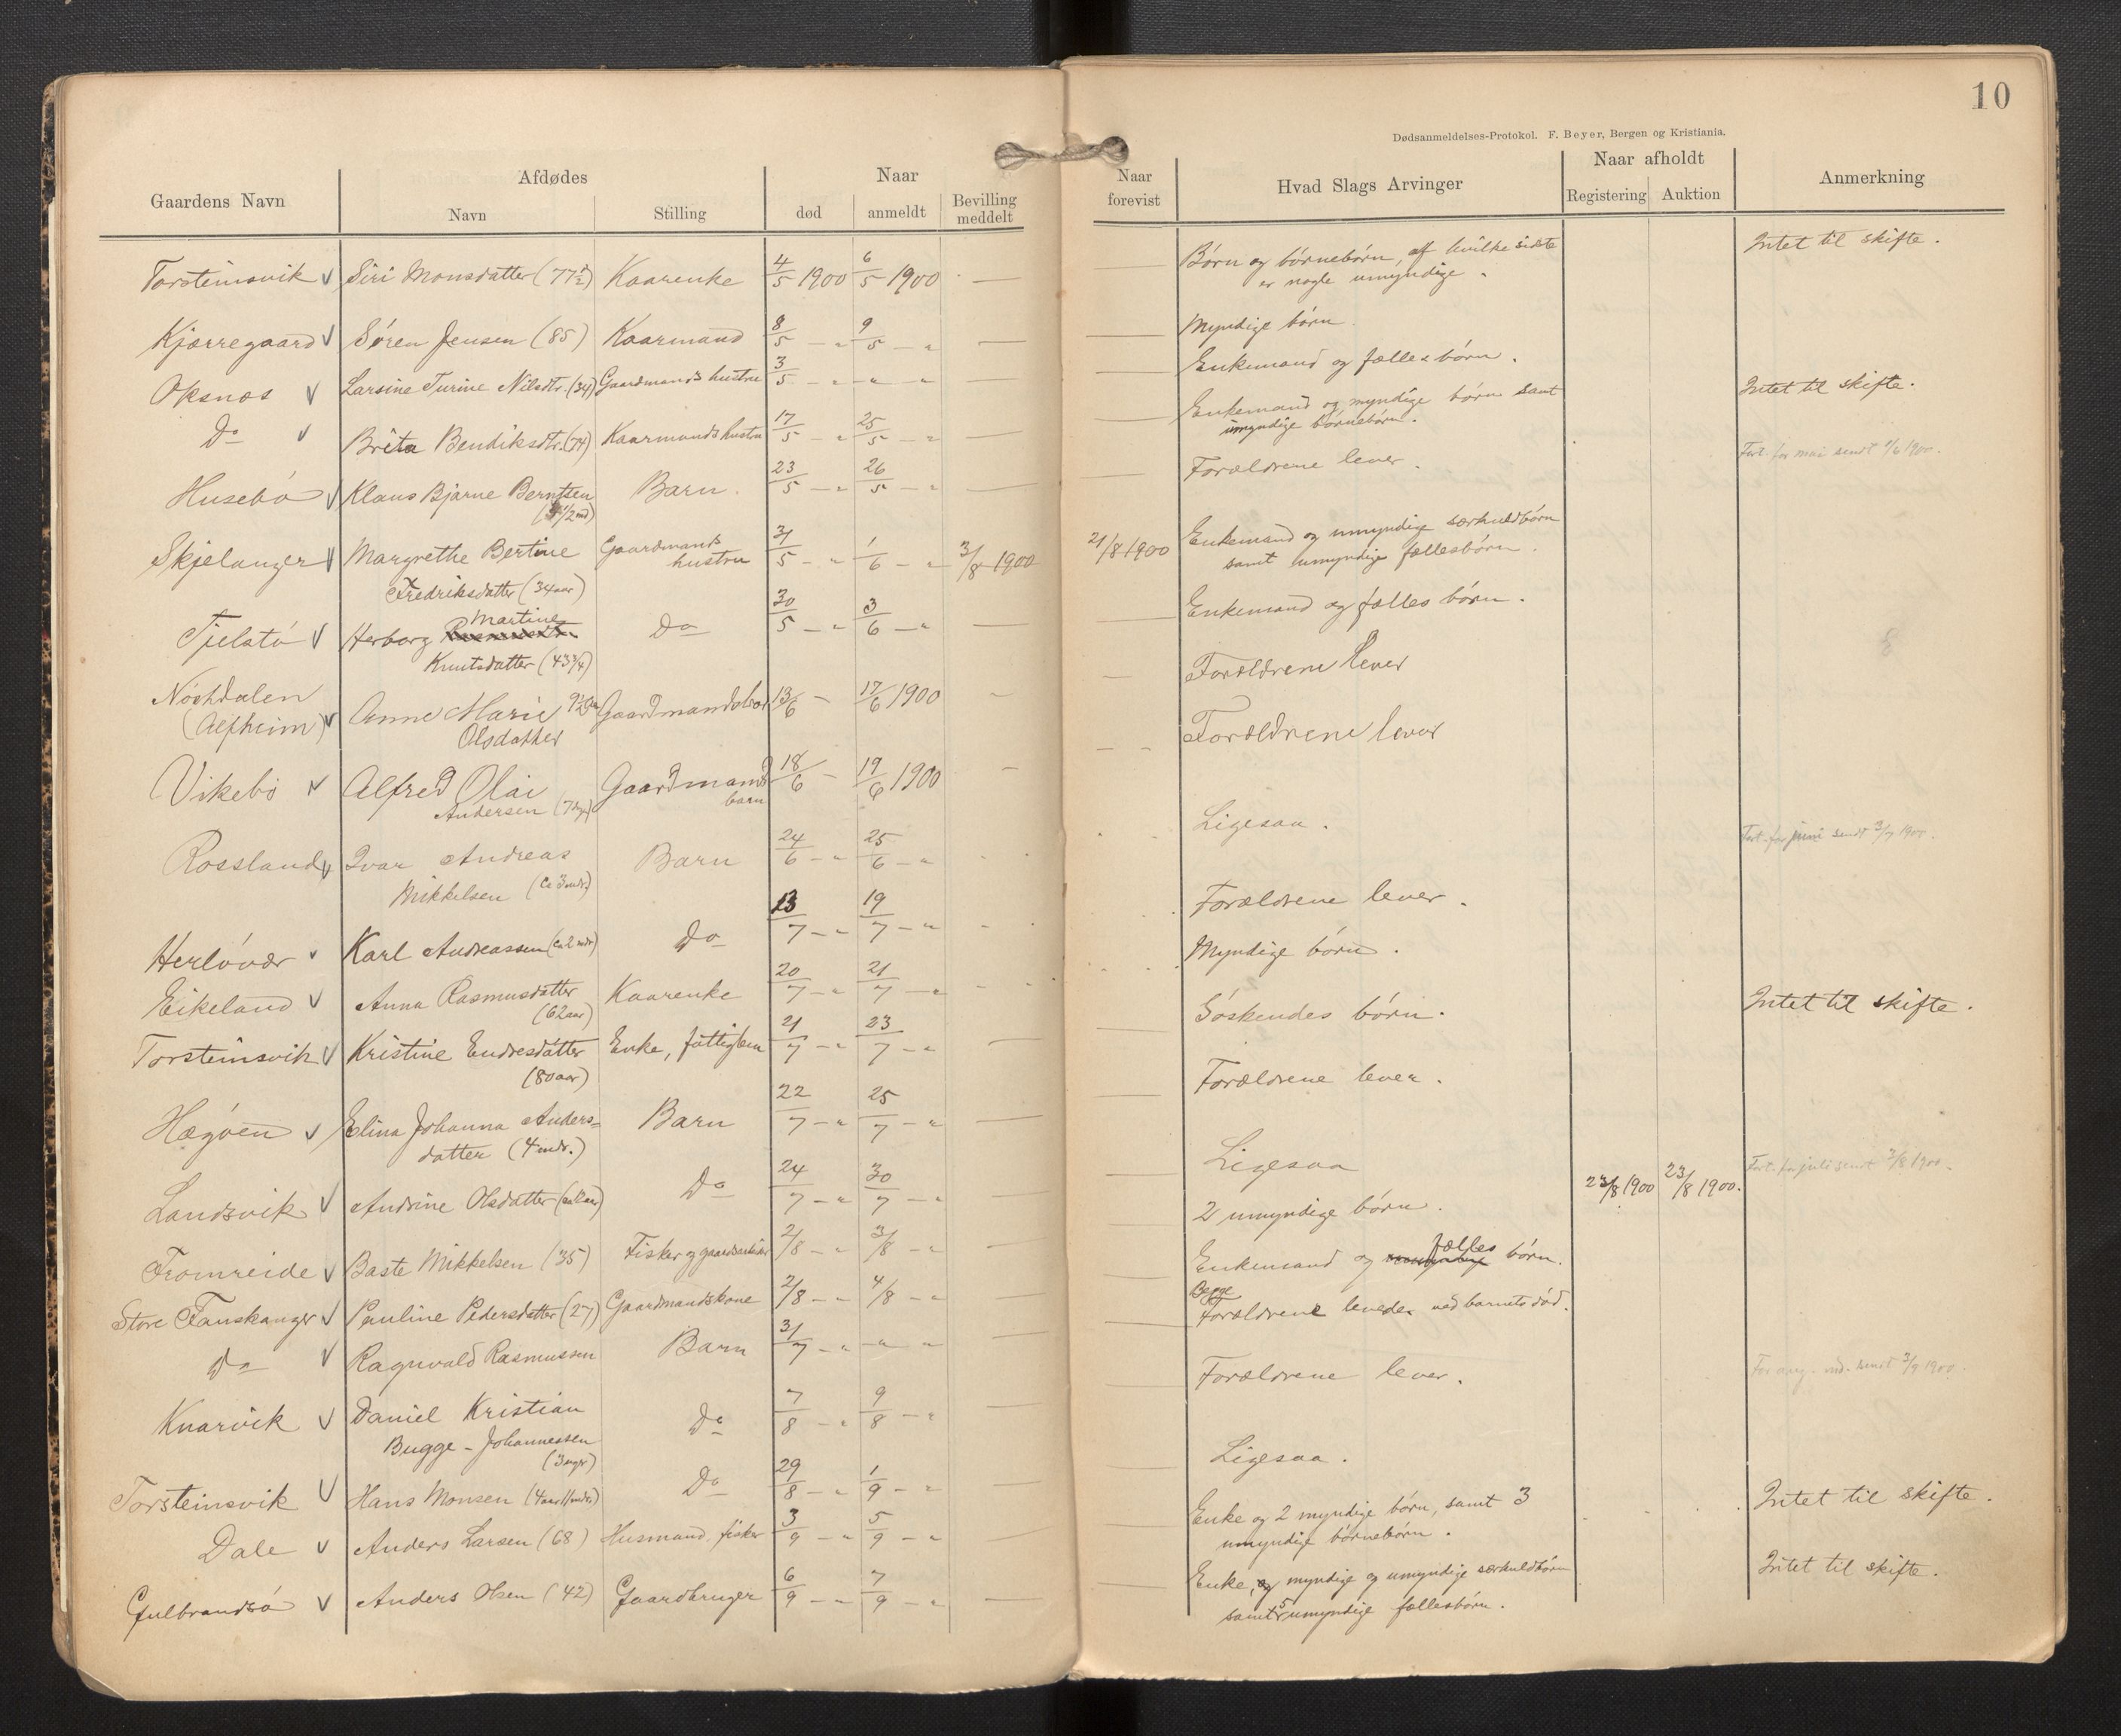 10
Dødsanmeldelses-Protokol. F. Beyer, Bergen og Kristiania.
Gaardens Navn
Afdødes
Navn
Stilling
Naar
død
anmeldt
Bevilling meddelt
Naar forevist
Hvad Slags Arvinger
Naar afholdt
Registering
Auktion
Anmerkning
Torsteinsvik Siri Monsdatter (77½) Kaarenke 4/5 1900 6/5 1900 — — Børn og børnebørn, af hvilke sidste
er nogle umyndige. Intet til skifte.
Kjærregaard Søren Jensen (85) Kaarmand 8/5 — " 9/5 — " — — Myndige børn
Oksnæs Larsine Turine Nilsdtr. (34) Gaardmands hustru 3/5 — " " — " — — Enkemand og fælles børn.
Do Brita Bendiksdtr. (74) Kaarmands hustru 17/5 — " 25/5 — " — — Enkemand og myndige børn samt
umyndige børnebørn. Intet til skifte.
Husebø Klaus Bjarne Berntsen Barn. 23/5 — " 26/5 — " — — Forældrene lever.
Fort. for mai sendt 1/6 1900.
Skjelanger Margrethe Bertine Gaardmands
hustru 31/5 — " 1/6 — " 3/8 1900 21/8 1900 Enkemand og umyndige særkuldbørn
samt umyndige fællesbørn.
Fredriksdatter (34 aar)
Tjelstø Herborg Martine Do 30/5 — " 3/6 — " — Enkemand og fælles børn.
Knutsdatter (43¾)
Nordalen
(Alfheim) Anne Marie Olsdatter 13/6 — 17/6 1900 — — Forældrene lever
Vikebø Alfred Olai Gaardmands
barn 18/6 — 19/6 1900 — — Forældrene lever
Andersen (7 dg)
Rossland Ivar Andreas Barn 24/6 — " 25/6 — " Ligesaa.
Mikkelsen (ca 3 mdr.)
Fort. for juni sendt 3/7 1900.
Herløvær Karl Andreassen (ca 2 mdr) Do 13/7 — " 19/7 — " Forældrene lever.
Eikeland Anna Rasmusdatter Kaarenke 20/7 — " 21/7 — " Myndige børn.
(62 aar)
Torsteinsvik Kristine Endresdatter Enke, fattiglem 21/7 — " 23/7 — " — — Søskendes børn. Intet til skifte.
(80 aar)
Hægøen Elina Johanna Anders=
datter (4 mdr.) Barn 22/7 — " 25/7 — " — — Forældrene lever.
Landsvik Andrine Olsdatter Do 24/7 — " 30/7 — " — — Ligesaa
Fort. for juli sendt 2/8 1900.
Fromreide Baste Mikkelsen (35) Fisker og gaardarbeider 2/8 — " 3/8 — " — — 2 umyndige børn. 23/8 1900 23/8 1900.
Store Fauskanger Pauline Pedersdatter (27) Gaardmandskone 2/8 — " 4/8 — " — — Enkemand og fælles børn.
Do Ragnvald Rasmussen Barn 31/7 — " " — " — Begge
Forældrene levede ved barnets død.
Knarvik Daniel Kristian Do 7/8 — " 9/8 — " — — Forældrene lever.
Bugge-Johannessen
(3 uger)
For aug. md. sendt 3/9 1900.
Torsteinsvik Hans Monsen (4 aar 11 mdr.) Do 29/8 — " 1/9 — " — — Ligesaa.
Dale Anders Larsen (68) Husmand, fisker 3/9 — " 5/9 — " — — Enke og 2 myndige børn, samt 3
umyndige børnebørn. Intet til skifte.
Gulbrandsø Anders Olsen (42) Gaardbruger 6/9 — " 7/9 — " — — Enke, og myndige og umyndige særkuldbørn
samt 5 umyndige fællesbørn. Intet til skifte.